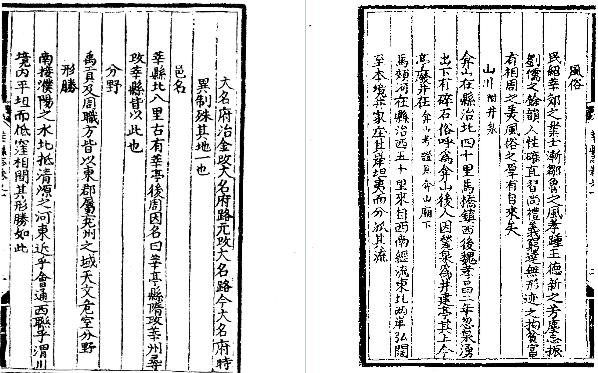 大名府治金改大名府路元改大名路今大名府特
異制殊其地一也
邑名
莘縣北八里古有莘亭後周因名曰莘亭縣隋改莘州尋
改莘縣昔以此也
分野
禹貢及周職方皆以東郡屬兗州之域天文危室分野
形勝
南接濮陽之水北抵清源之河東近乎會通西聯乎渭川
境內平坦而低窪相間其形勝如此
風俗
民紹莘郊之業士漸鄒魯之風孝踵王德新之芳廉忠振
劉儒之餘韻人性確直習尚禮義窮達無形迹之拘貧富
有相周之美風俗之厚有自來矣
山川 附井泉
弇山在縣治北四十里馬橋鎮西後魏孝昌二年忽泉湧
出下有碎石俗呼為弇山後人因鑿泉為井建亭其上今
亭廢井在 弇山考證見弇山廟下
馬頰河在縣治西五十里來自西南經流東北兩岸弘闊
至本境莘家庄其岸坦夷而分派其流